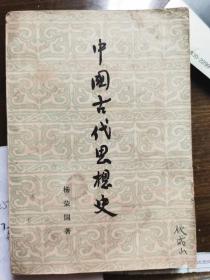 中国古代思想史
杨荣国 著